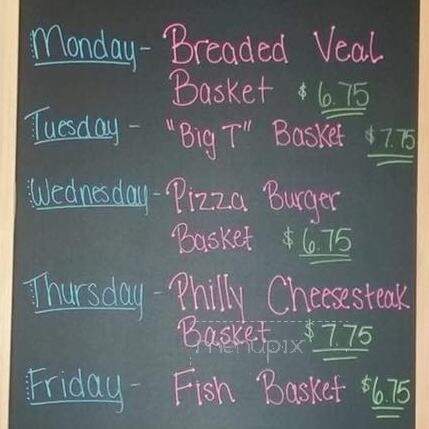 Monday - Breaded Veal
Basket $6.75
Tuesday - "Big T" Basket $7.75
Wednesday - Pizza Burger
Basket $6.75
Thursday - Philly Cheesesteak
Basket $7.75
menupix
Friday - Fish Basket $6.75